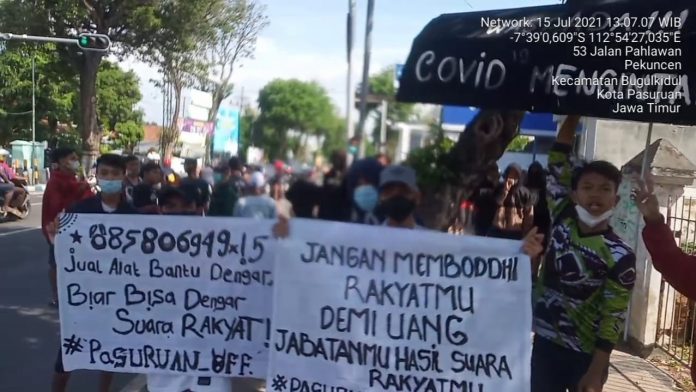 Network: 15 Jul 2021 13.07.07 WIB
-7°39'0,609"S 112°54'27,035"E
53 Jalan Pahlawan
Pekuncen
Kecamatan Bugulkidul
Kota Pasuruan
Jawa Timur
COVID 19
JANGAN MEMBODOHI
RAKYATMU
DEMI UANG
JABATANMU HASIL SUARA
RAKYATMU
Jual Alat Bantu Dengar,
Biar Bisa Dengar
Suara RAKYAT!
#PASURUAN_OFF.